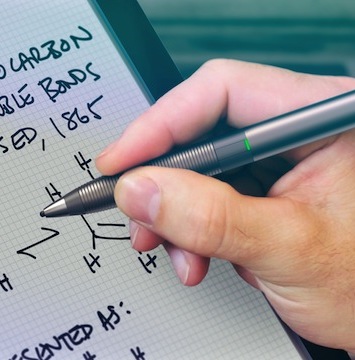 OCARBON
BLE BONDS
SED, 1865
H
H
H
H
H
ESENTED AS:
H
H